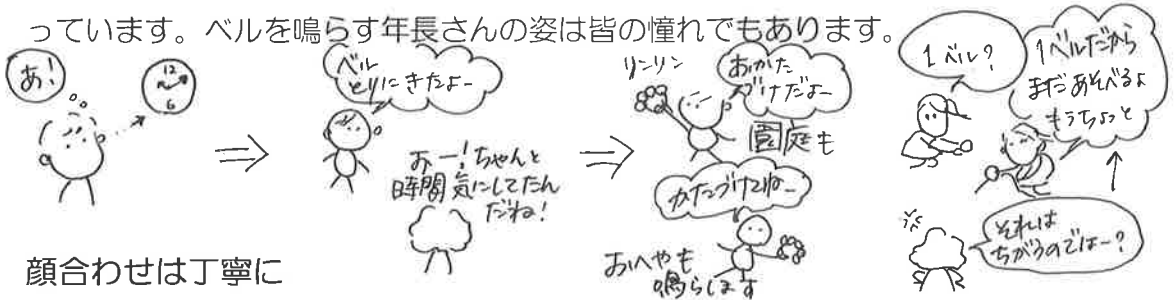 っています。ベルを鳴らす年長さんの姿は皆の憧れでもあります。
あ!
12
6
ベル
とりにきたよー
おー!ちゃんと
時間気にしてたん
だね!
リンリン
おかた
づけだよー
園庭も
かたづけてねー
おへやも
鳴らします
1ベル?
1ベルだから
まだあそべるよ
もうちょっと
それは
ちがうのではー?
顔合わせは丁寧に